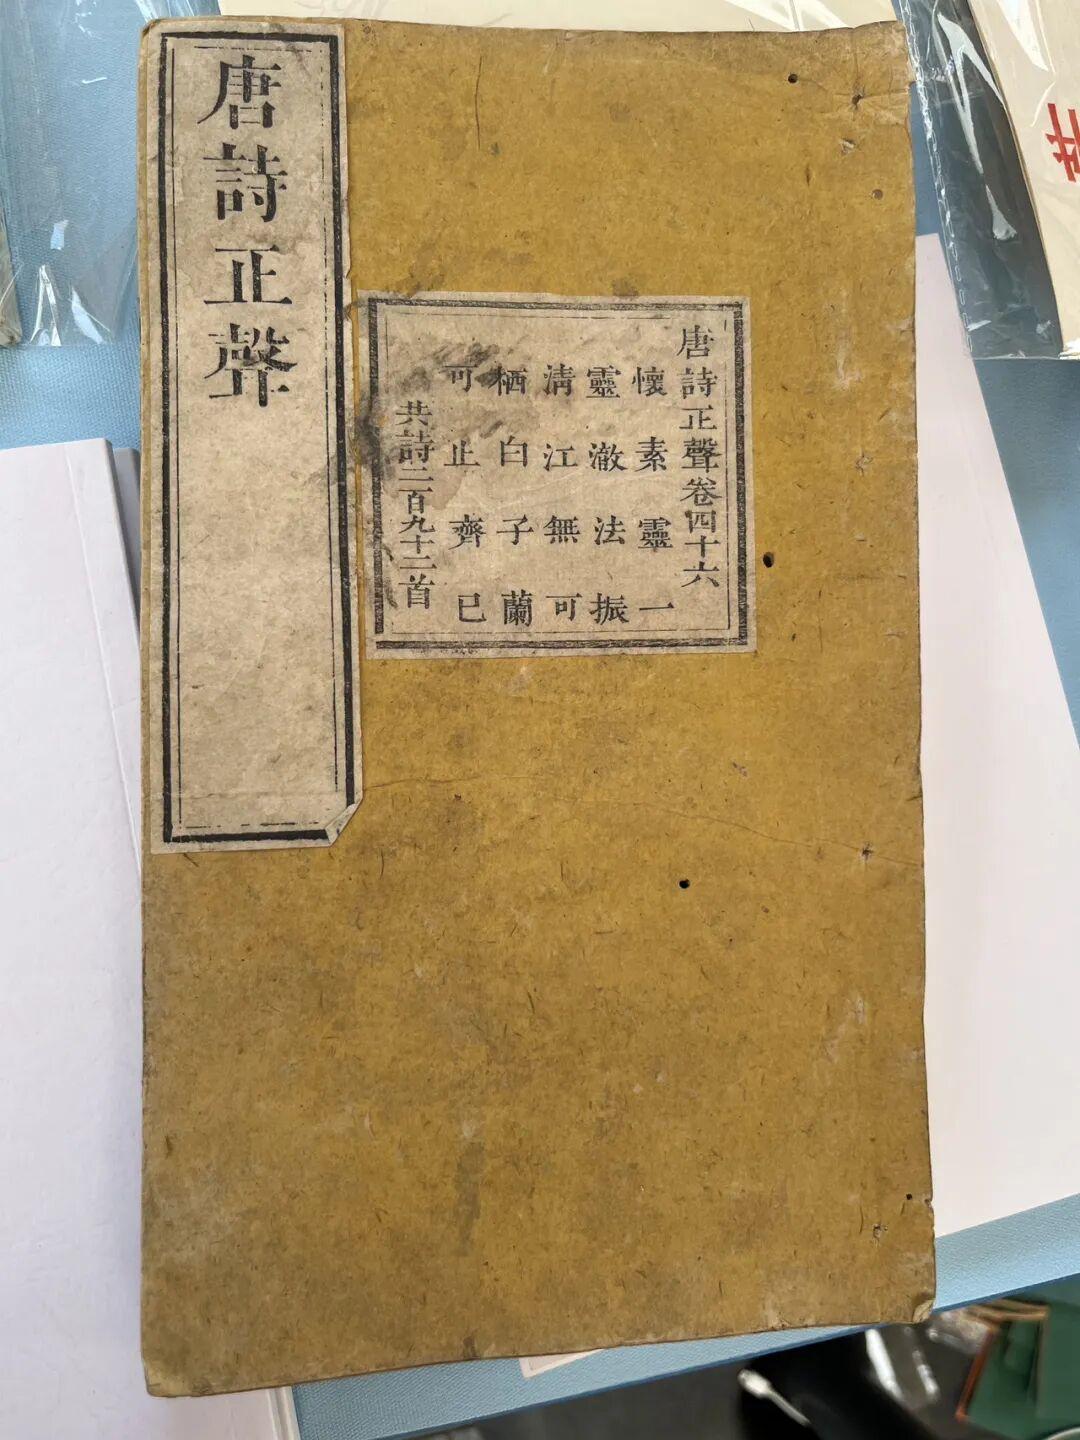 唐詩正聲
唐詩正聲卷四十六
懷素靈一
靈澈法振
清江無可
栖白子蘭
可止齊已
共詩二百九十二首